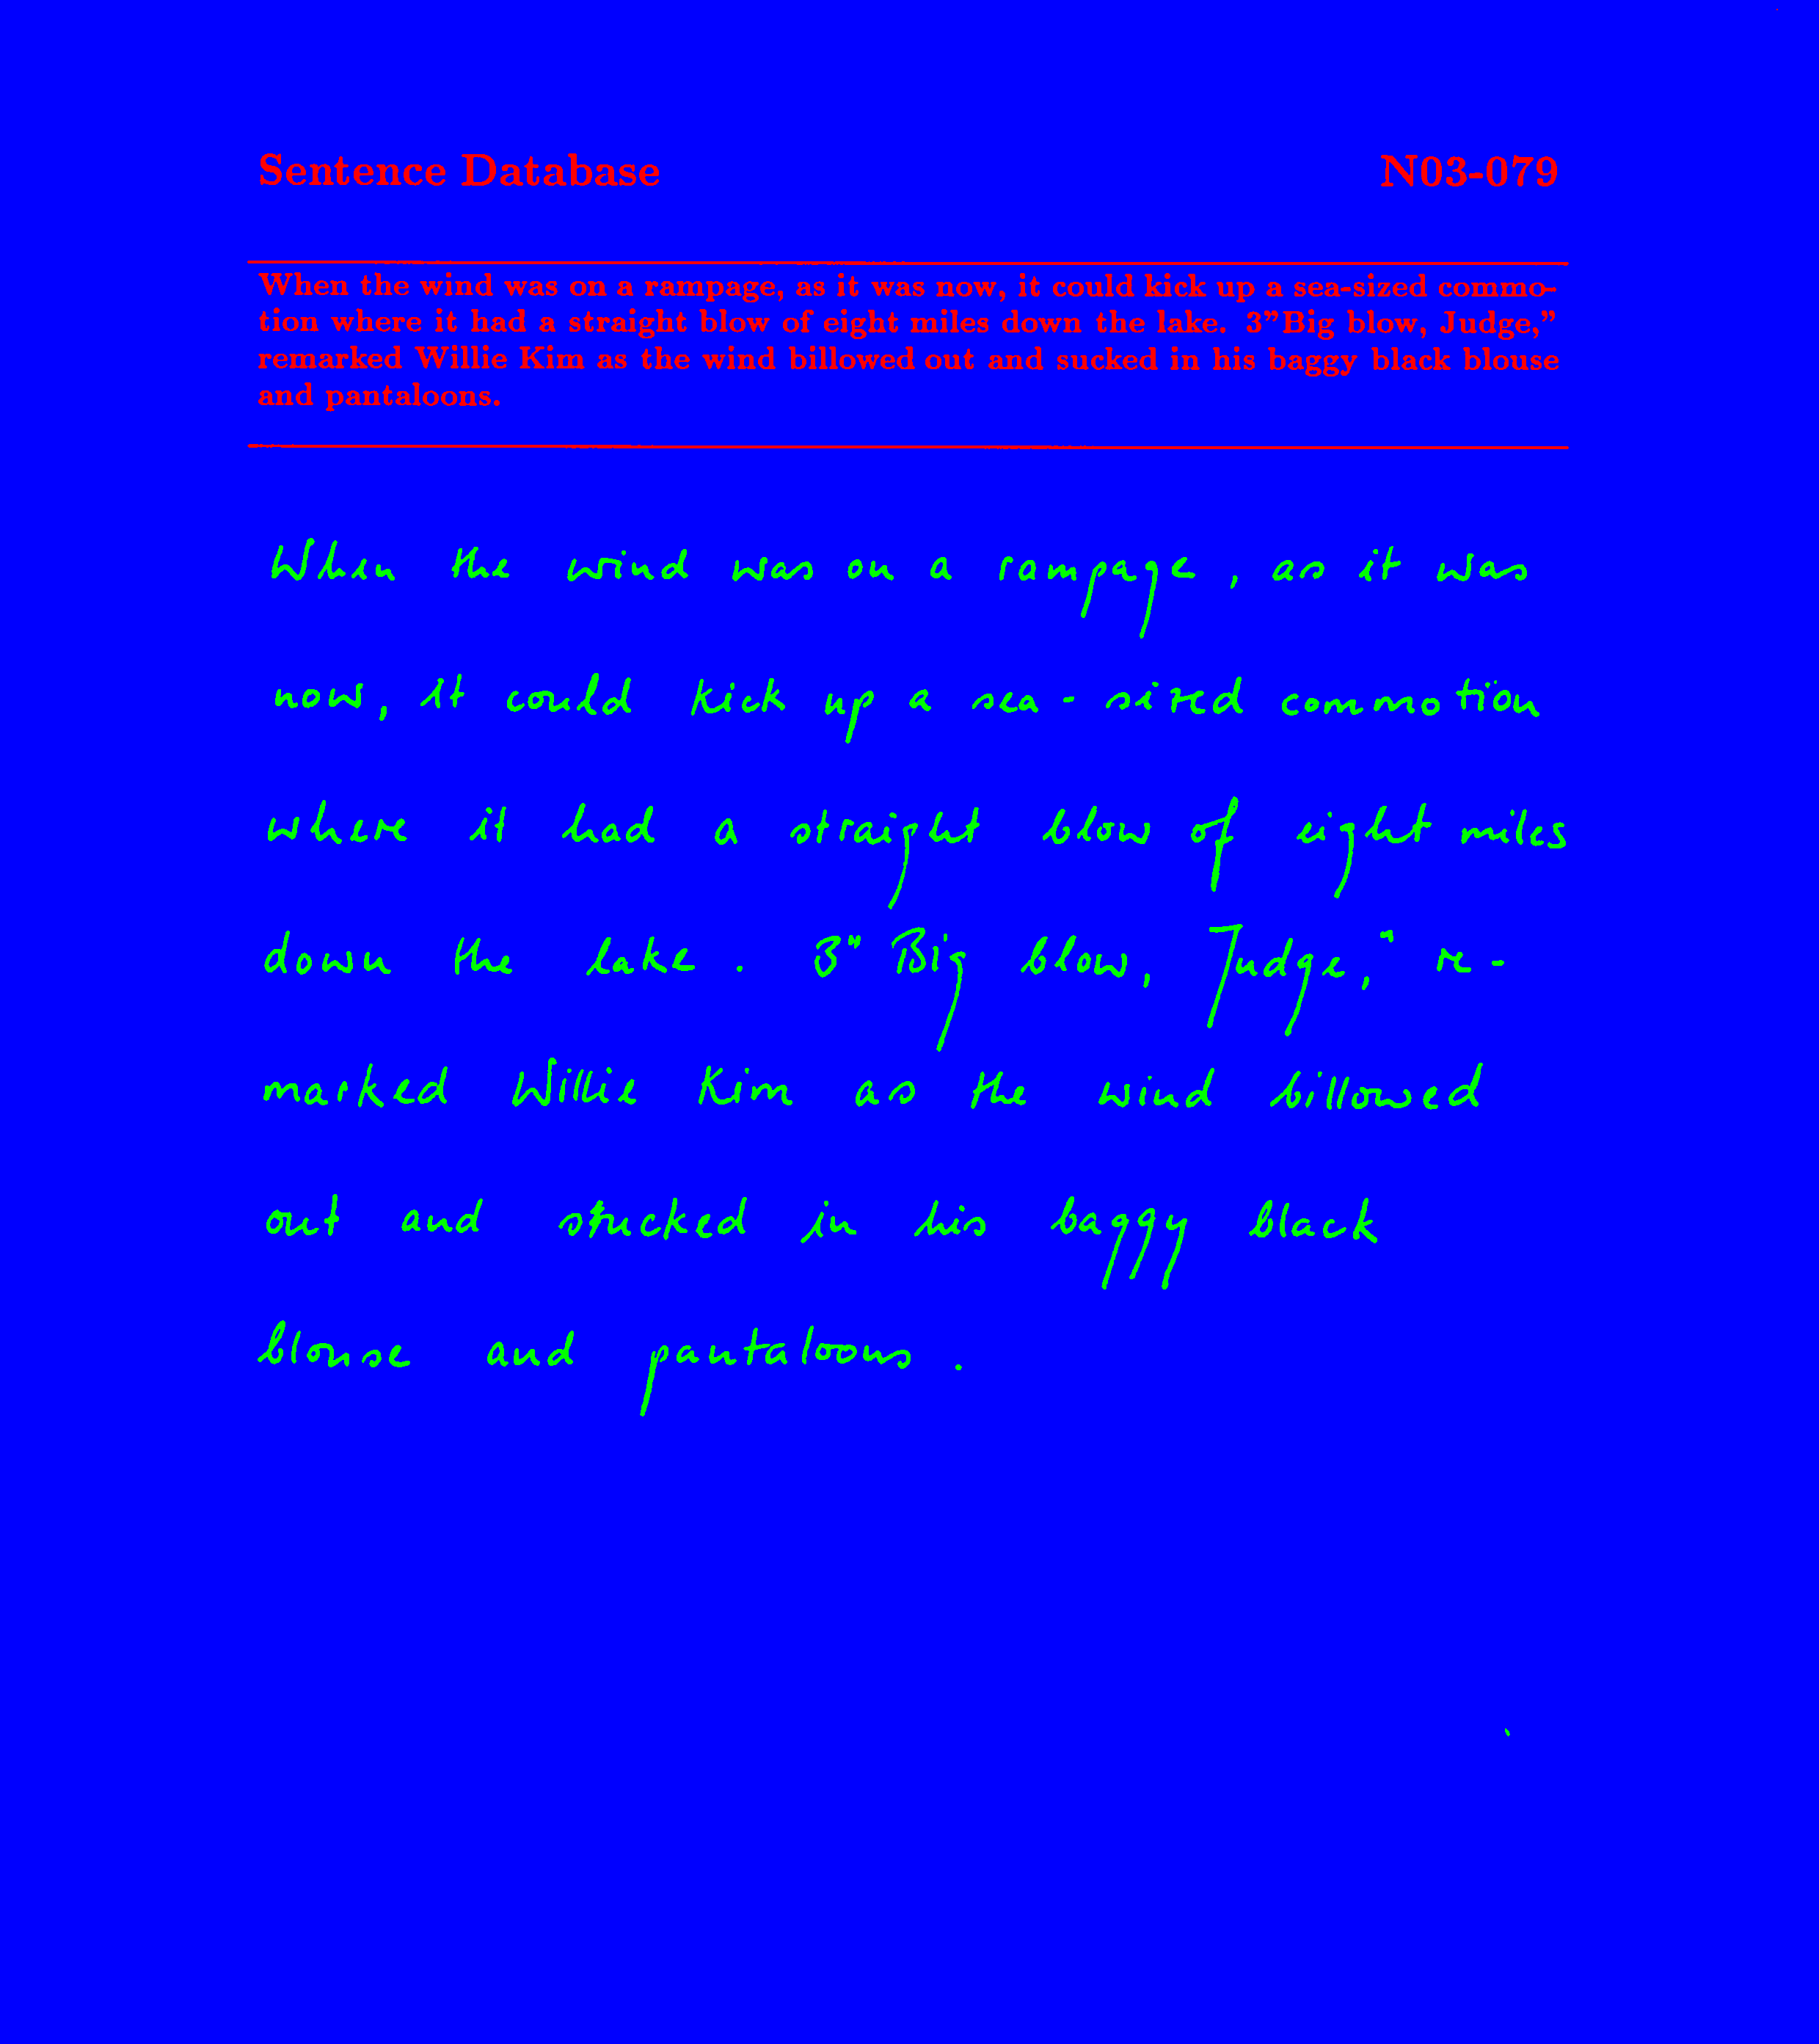 Sentence Database N03-079
When the wind was on a rampage, as it was now, it could kick up a sea-sized commo-
tion where it had a straight blow of eight miles down the lake. 3"Big blow, Judge,"
remarked Willie Kim as the wind billowed out and sucked in his baggy black blouse
and pantaloons.
When the wind was on a rampage, as it was
now, it could kick up a sea-sized commotion
where it had a straight blow of eight miles
down the lake. 3" Big blow, Judge," re-
marked Willie Kim as the wind billowed
out and stucked in his baggy black
blouse and pantaloons.